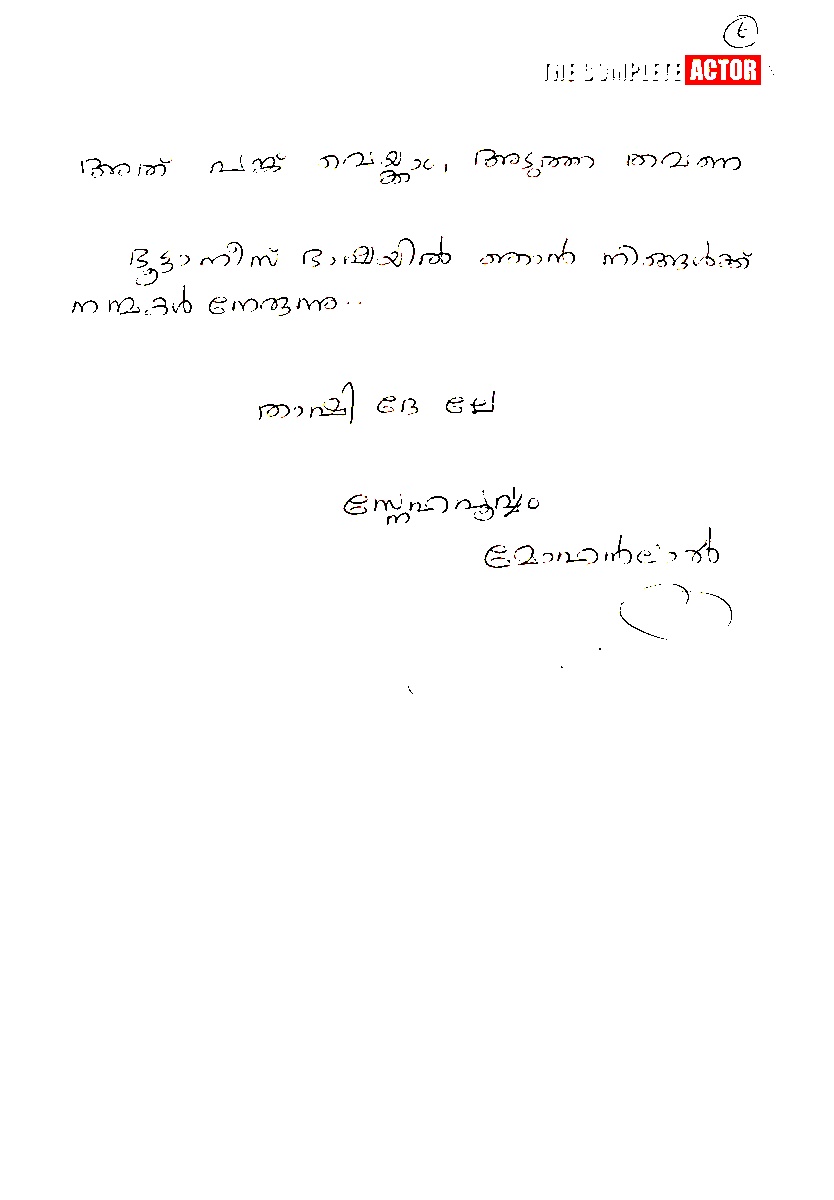 THE COMPLETE ACTOR
അത് പങ്കു വെയ്ക്കാം, അടുത്ത തവണ
ഭൂട്ടാനീസ് ഭാഷയിൽ ഞാൻ നിങ്ങൾക്ക്
നന്മകൾ നേരുന്നു..
താഷി ദേ ലേ
സ്നേഹപൂർവ്വം
മോഹൻലാൽ